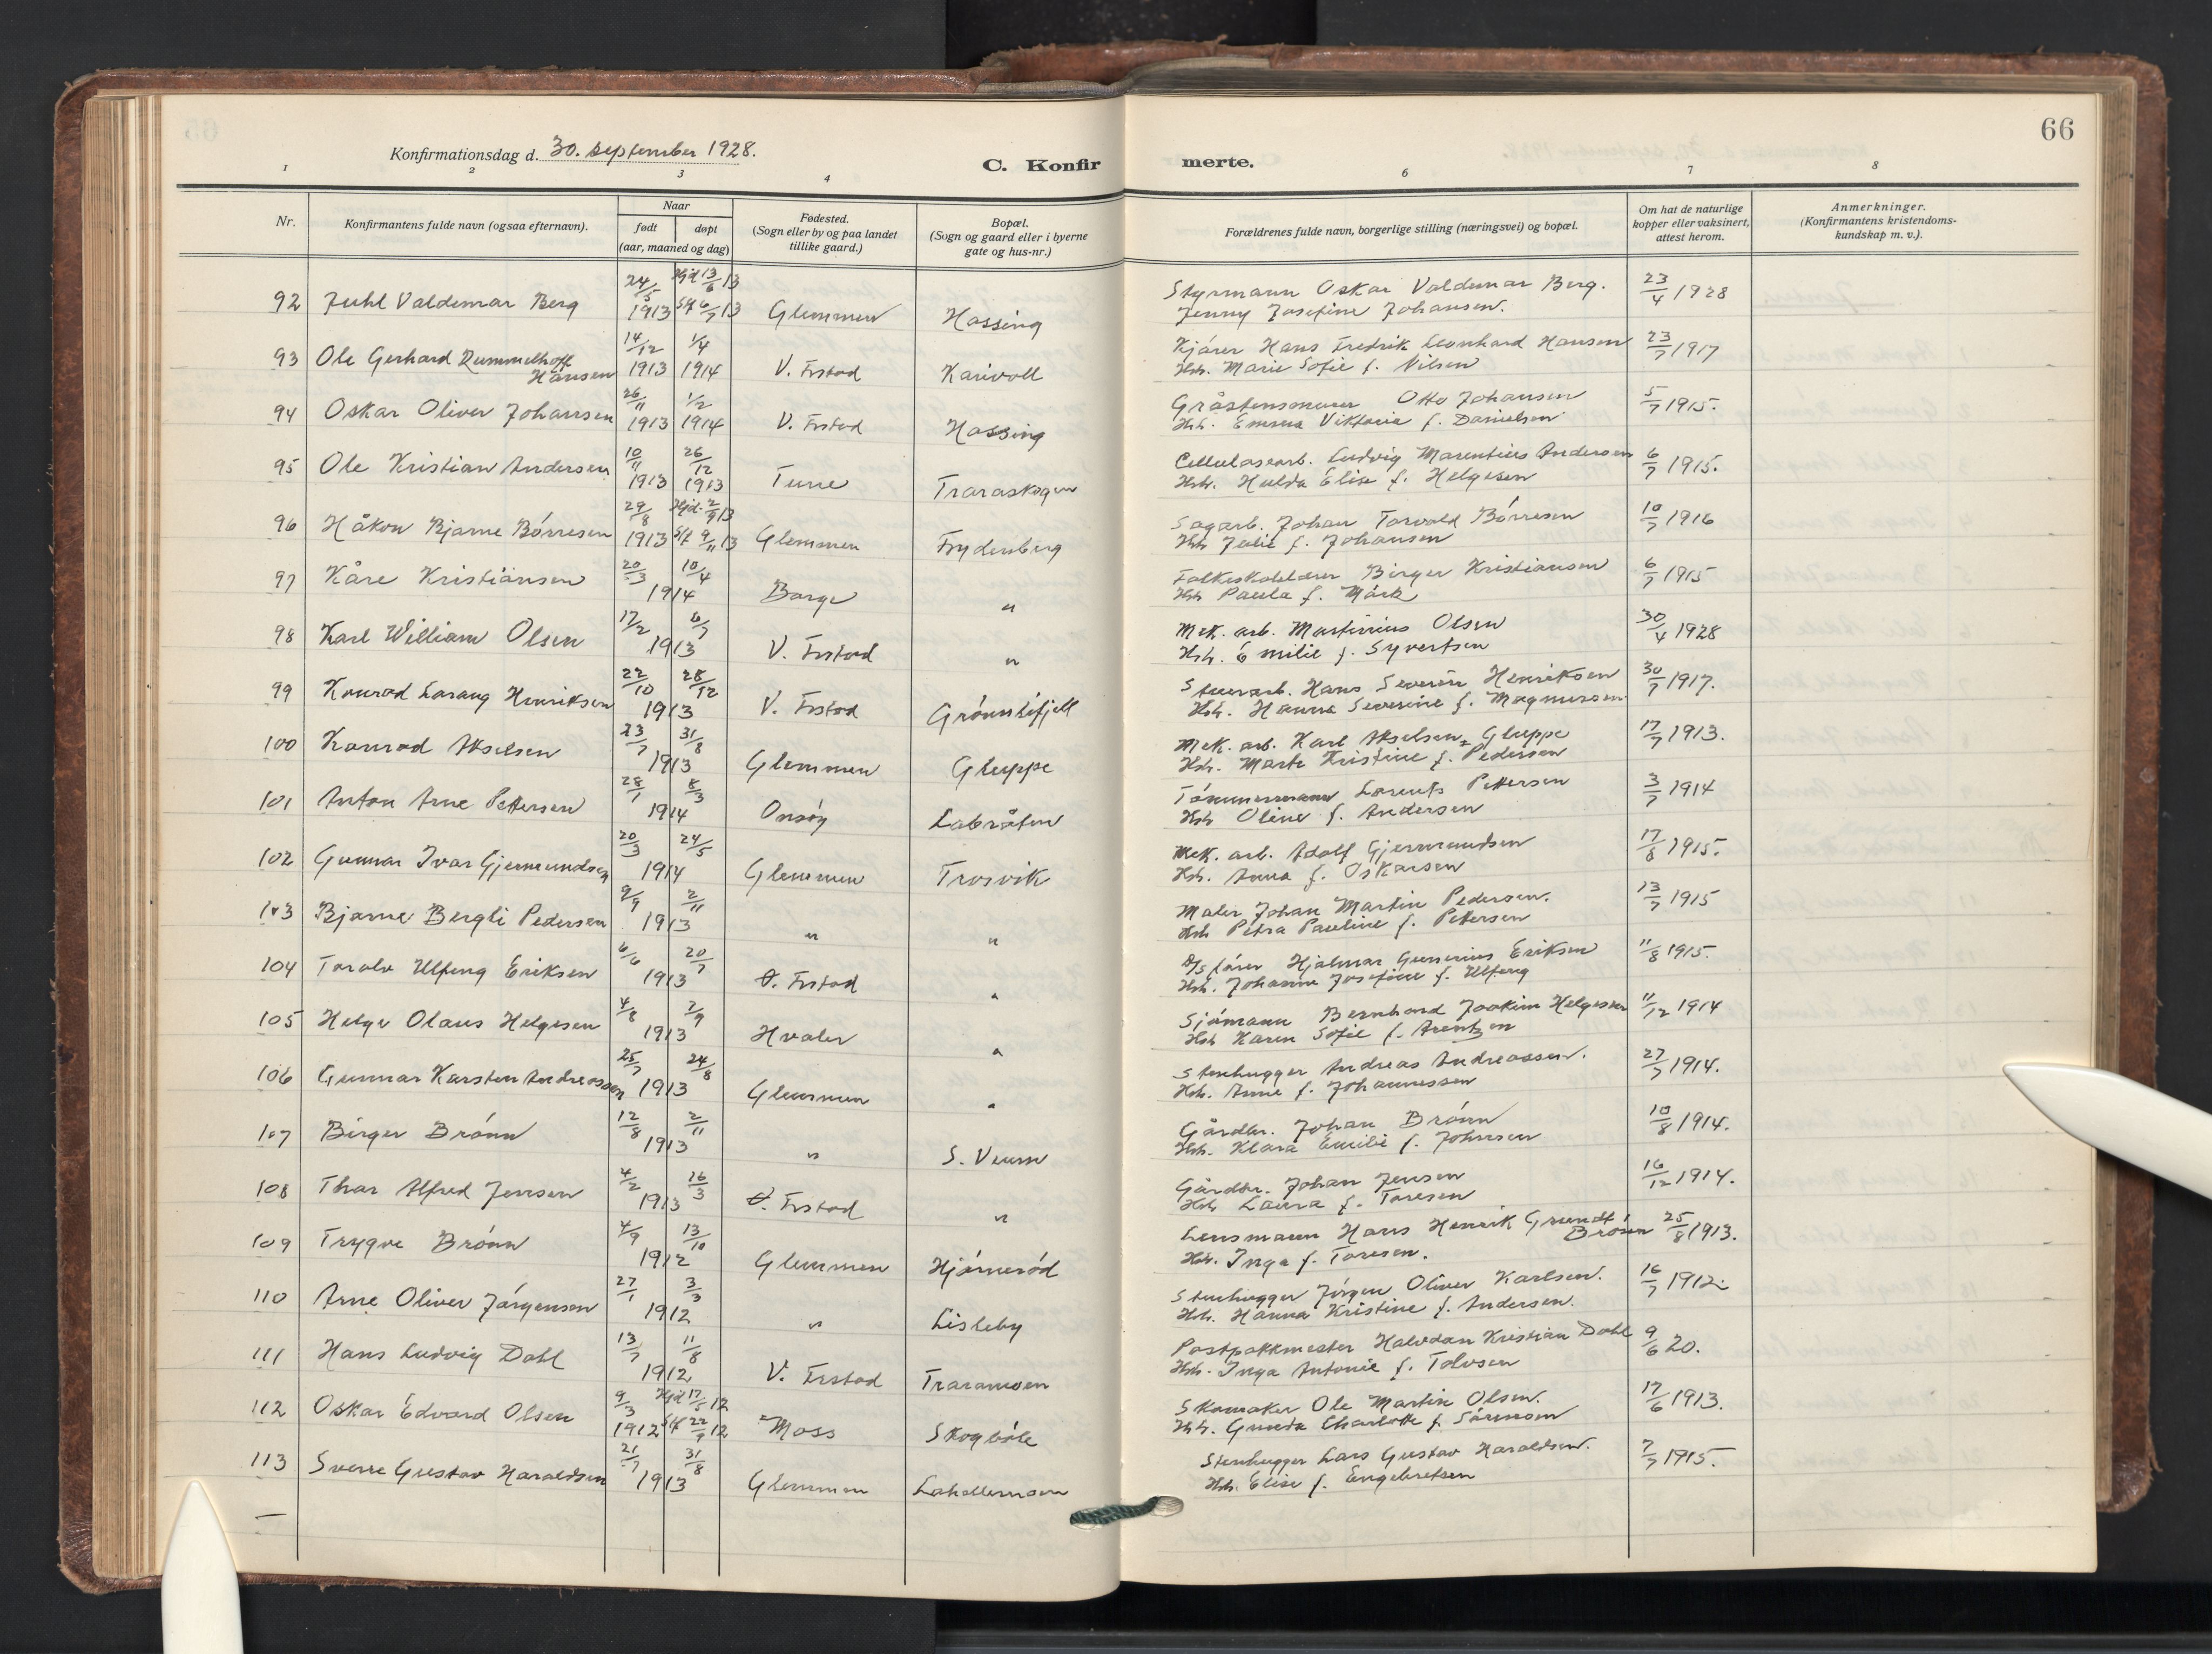 66
Konfirmationsdag d. 30. september 1928.
C. Konfir merte.
1 2 3 4 6 7 8
Nr.
Konfirmantens fulde navn (ogsaa efternavn).
Naar
født døpt
(aar, maaned og dag)
Fødested.
(Sogn eller by og paa landet
tillike gaard.)
Bopæl.
(Sogn og gaard eller i byerne
gate og hus-nr.)
Forældrenes fulde navn, borgerlige stilling (næringsvei) og bopæl.
Om hat de naturlige
kopper eller vaksinert,
attest herom.
Anmerkninger.
(Konfirmantens kristendoms-
kundskap m. v.).
92 Juhl Valdemar Berg 24/5 1913 Hjd 13/6 13 Stf 6/7 13 Glemmen Hassing
Styrmann Oskar Valdemar Berg. 23/4 1928
Jenny Josefine Johansen.
93 Ole Gerhard Rummelhoff Hansen 14/12 1913 1/4 1914 V. Frstad Karivoll
Kjører Hans Fredrik Leonhard Hansen 23/7 1917
Hst. Marie Sofie f. Nilsen
94 Oskar Oliver Johansen 26/11 1913 1/2 1914 V. Frstad Hassing
Gråstensmurer Otto Johansen 5/7 1915.
Hst. Emma Viktoria f. Danielsen
95 Ole Kristian Andersen 10/11 1913 26/12 1913 Tune Traraskogen
Cellulosearb. Ludvig Marentius Andersen 6/7 1915.
Hst. Hulda Elise f. Helgesen
96 Håkon Bjarne Børresen 29/8 1913 Hjd. 2/9 13 Stf 9/11 13 Glemmen Frydenberg
Sagarb. Johan Torvald Børresen 10/7 1916
Hst Julie f. Johansen
97 Kåre Kristiansen 20/3 10/4 1914 Borge "
Folkeskolelærer Birger Kristiansen 6/7 1915
Hst Paula f. Mørk
98 Karl William Olsen 17/2 6/7 1913 V. Frstad "
Mek. arb. Martinius Olsen 30/4 1928
Hst. Emilie f. Syvertsen
99 Konrad Larang Henriksen 22/10 28/12 1913 V. Frstad Grønnlifjell
Stuerarb. Hans Severin Henriksen 30/7 1917.
Hst. Hanna Severine f. Magnussen
100 Konrad Akselsen 23/7 31/8 1913 Glemmen Gluppe
Mek. arb. Karl Akselsen, Gluppe 17/7 1913.
Hst. Marte Kristine f. Pedersen
101 Anton Arne Pettersen 28/1 8/3 1914 Onsøy Labråten
Tømmermann Lorents Pettersen 3/7 1914
Hst Oline f. Andersen
102 Gunnar Ivar Gjermundsen 20/3 24/5 1914 Glemmen Trosvik
Mek. arb. Adolf Gjermundsen 17/8 1915.
Hst. Anna f. Oskarsen
103 Bjarne Bergli Pedersen 9/9 2/11 1913 " "
Maler Johan Martin Pedersen. 13/7 1915
Hst Petra Pauline f. Pettersen
104 Toralv Ulfeng Eriksen 6/6 20/7 1913 Ø. Frstad "
D/S fører Hjalmar Gunerius Eriksen 11/8 1915.
Hst. Johanne Josefine f. Ulfeng
105 Helge Olaus Helgesen 4/8 2/9 1913 Hvaler "
Sjømann Bernhard Joakim Helgesen 11/12 1914
Hst Karen Sofie f. Arentzen
106 Gunnar Karsten Andreassen 25/7 24/8 1913 Glemmen "
Stenhugger Andreas Andreassen. 27/7 1914.
Hst. Anne f. Johannessen
107 Birger Brønn 12/8 2/11 1913 " S. Veum
Gårdbr. Johan Brønn 10/8 1914.
Hst. Klara Emilie f. Johnsen
108 Thor Alfred Jensen 4/2 16/3 1913 Ø. Frstad "
Gårdbr. Johan Jensen 16/12 1914.
Hst Laura f. Toresen
109 Trygve Brønn 4/9 13/10 1912 Glemmen Hjørnerød
Lensmann Hans Henrik Grundt Brønn 25/8 1913.
Hst. Inga f. Toresen.
110 Arne Oliver Jørgensen 27/1 3/3 1912 " Lisleby
Stenhugger Jørgen Oliver Karlsen. 16/7 1912.
Hst. Hanna Kristine f. Andersen.
111 Hans Ludvig Dahl 13/7 11/8 1912 V. Frstad Traramoen
Postpakkmester Halvdan Kristian Dahl 9/6 20.
Hst. Inga Antonie f. Tolvsen
112 Oskar Edvard Olsen 9/3 1912 Hjd 17/5 12 Stf 22/9 12 Moss Skogbøle
Skomaker Ole Martin Olsen. 17/6 1913.
Hst. Gunda Charlotte f. Sørensen
113 Sverre Gustav Haraldsen 21/7 31/8 1913 Glemmen Lahellemoen
Stenhugger Lars Gustav Haraldsen. 7/7 1915.
Hst. Elise f. Engebretsen